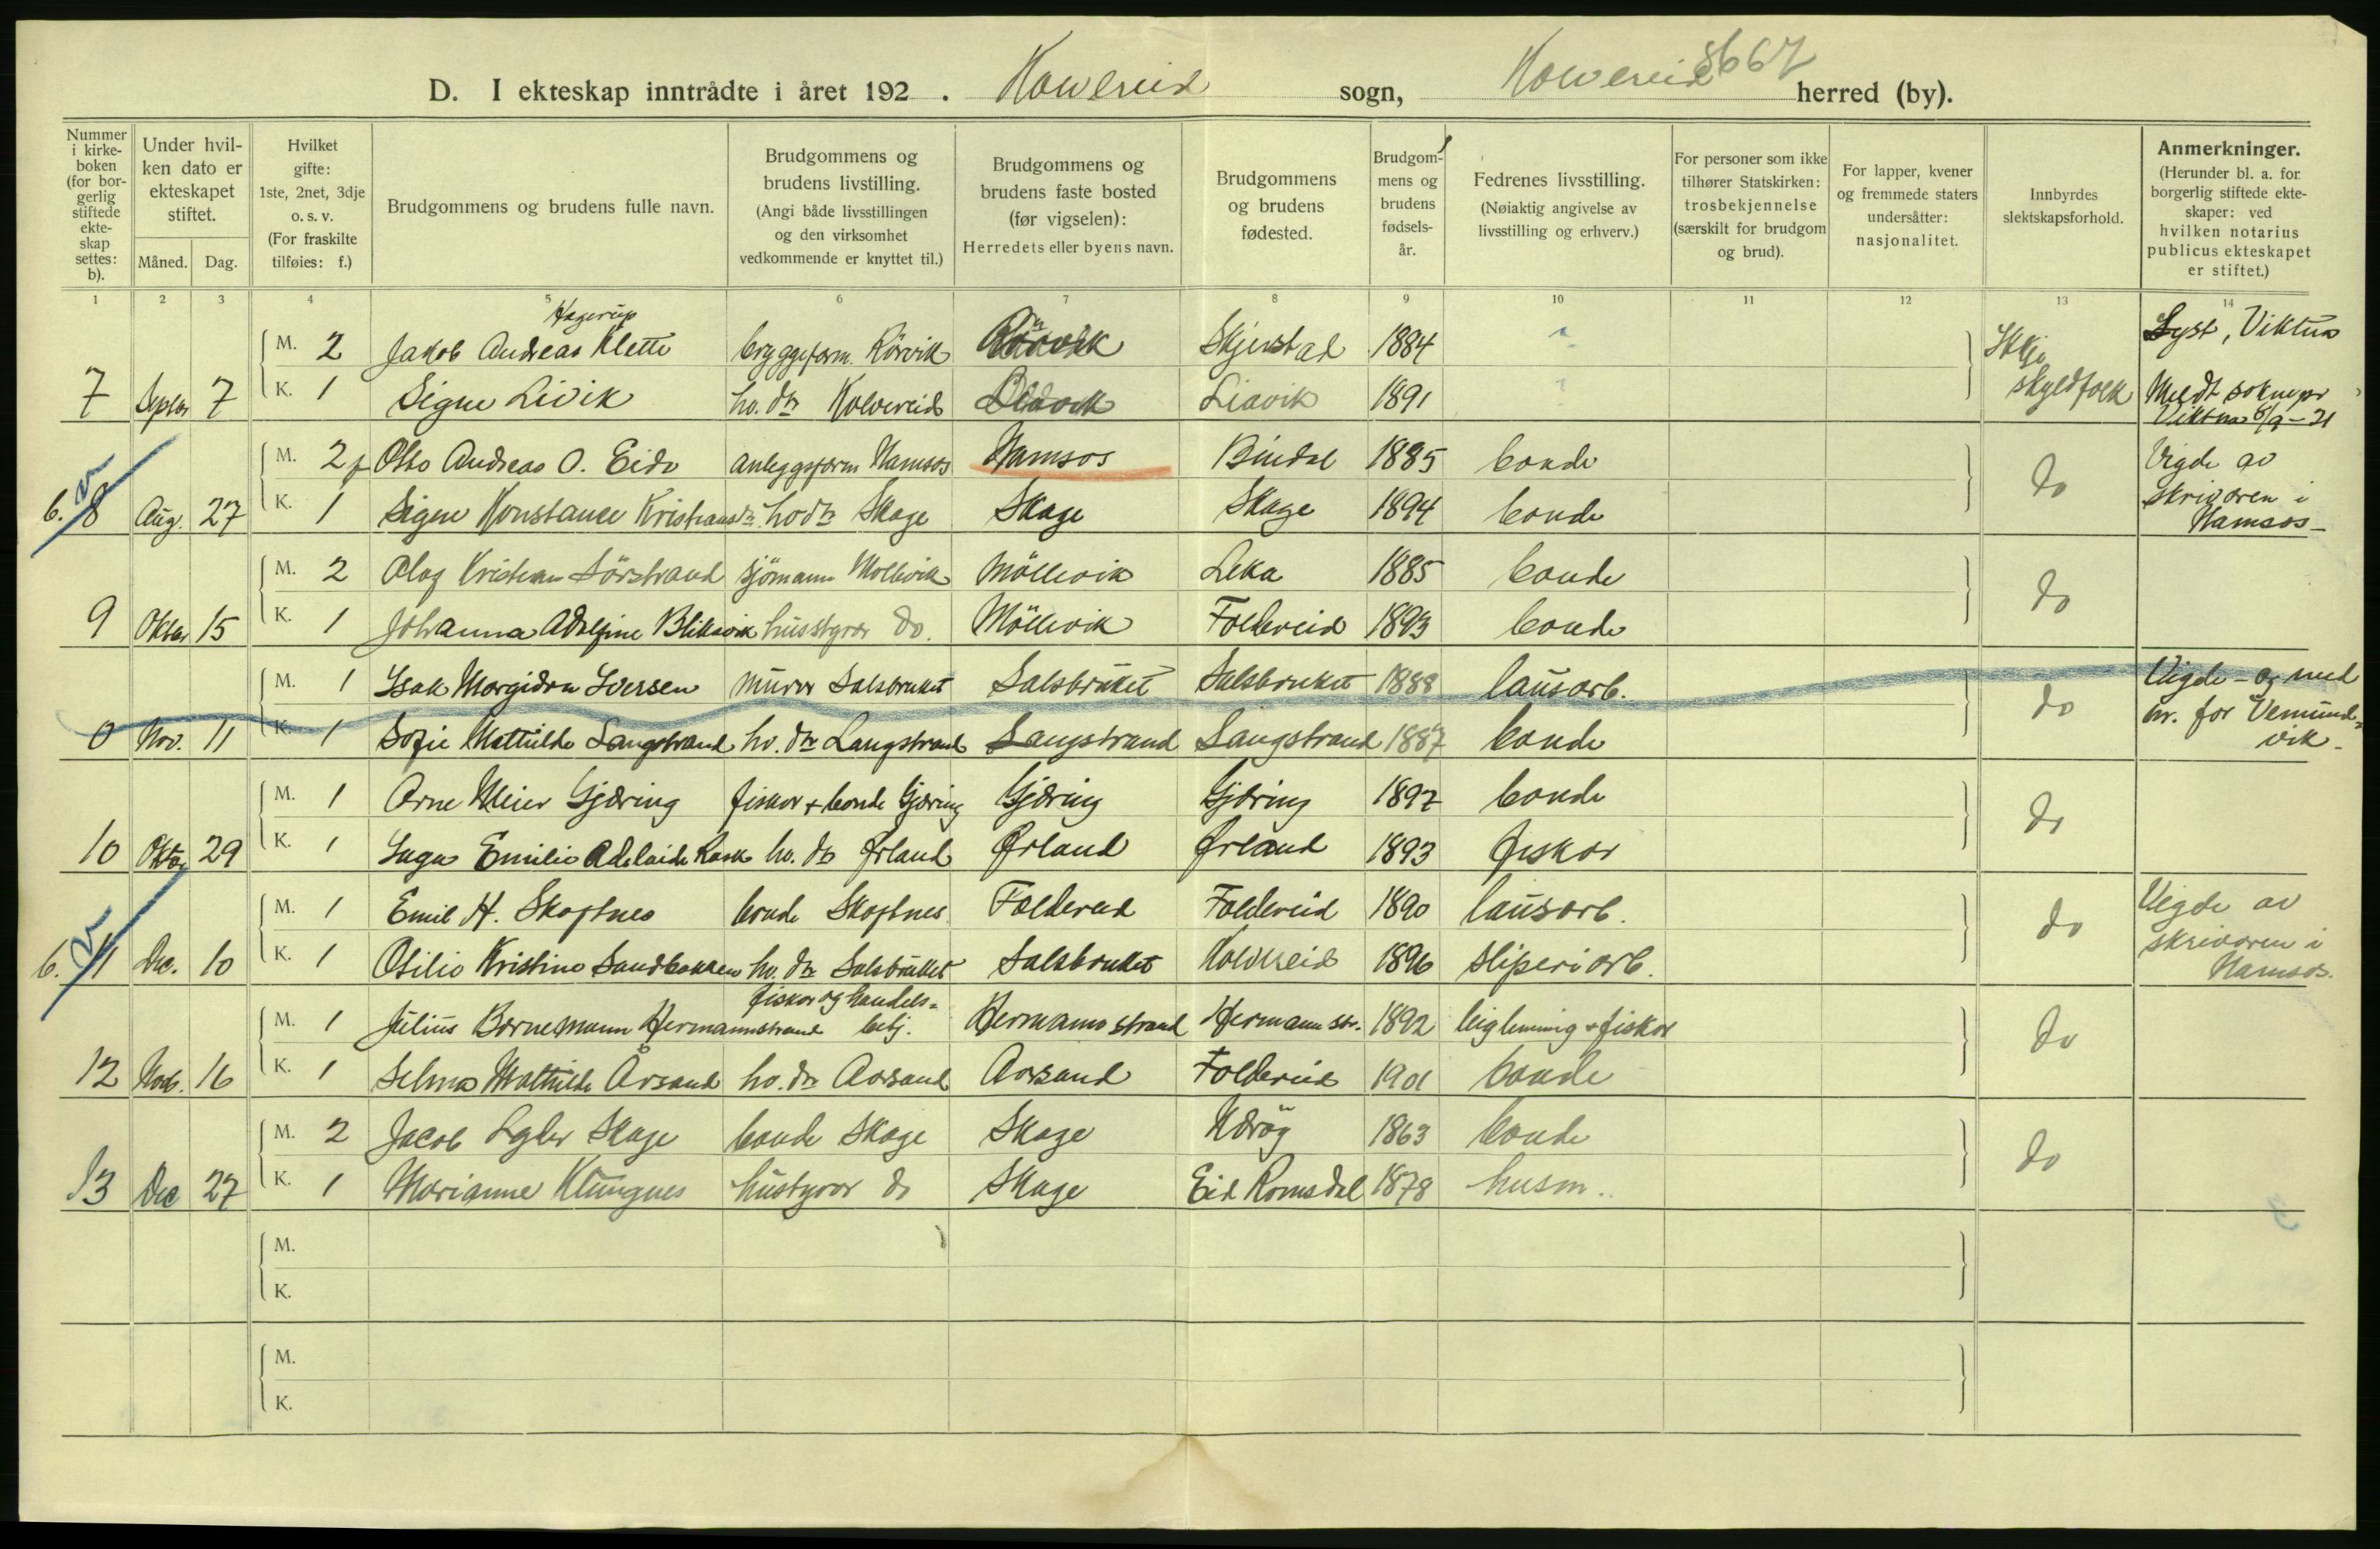 8667
D. I ekteskap inntrådte i året 192 . Kolvereid sogn, Kolvereid herred (by).
Nummer i kirkeboken (for borgerlig stiftede ekteskap settes: b).
Under hvilken dato er ekteskapet stiftet.
Måned. Dag.
Hvilket gifte: 1ste, 2net, 3dje o. s. v. (For fraskilte tilføies: f.)
Brudgommens og brudens fulle navn.
Brudgommens og brudens livstilling. (Angi både livsstillingen og den virksomhet vedkommende er knyttet til.)
Brudgommens og brudens faste bosted (før vigselen): Herredets eller byens navn.
Brudgommens og brudens fødested.
Brudgommens og brudens fødsels-år.
Fedrenes livsstilling. (Nøiaktig angivelse av livsstilling og erhverv.)
For personer som ikke tilhører Statskirken: trosbekjennelse (særskilt for brudgom og brud).
For lapper, kvener og fremmede staters undersåtter: nasjonalitet.
Innbyrdes slektskapsforhold.
Anmerkninger. (Herunder bl. a. for borgerlig stiftede ekteskaper: ved hvilken notarius publicus ekteskapet er stiftet.)
1 2 3 4 5 6 7 8 9 10 11 12 13 14
Hagerup
M. 2 Jakob Andreas Klette bryggeform. Rörvik Rörvik Skjerstad 1884 Ikkje Lyst, Viktna
7 Septbr 7 K. 1 Signe Livik ho. dtr Kolvereid Liavik 1891 skyldfolk Meldt soknepr Viktna 8/9-21
M. 2 f Otto Andreas O. Eide anleggsform Namsos Namsos Bindal 1885 bonde Vigde av
b. 8 Aug. 27 K. 1 Signe Konstance Kristiansdtr ho dtr Skage Skage Skage 1894 bonde do skrivaren i Namsos
M. 2 Olaf Kristian Sörstrand sjömann Möllevik Möllevik Leka 1885 bonde
9 Oktbr 15 K. 1 Johanna Adolfine Blikvik husstyrar do. Möllevik Foldereid 1893 bonde do
M. 1 Isak Margidon Iversen murer Salsbruket Salsbruket Salsbruket 1888 lausarb. Vigde - og med
0 Nov. 11 K. 1 Sofie Mathilde Langstrand ho. dtr Langstrand Langstrand Langstrand 1887 bonde do nr. for Vemundvik
M. 1 Arne Meier Gjæring fiskar + bonde Gjæring Gjæring Gjæring 1897 bonde
10 Oktbr 29 K. 1 Inga Emilie Adelaide Rask ho. dtr Ørland Ørland Ørland 1893 fiskar do
M. 1 Emil H. Skoftnes bonde Skoftnes Foldereid Foldereid 1890 lausarb. Vigde av
b. 11 Dec. 10 K. 1 Otilie Kristine Sandbakken ho. dtr Salsbruket Salsbruket Kolvereid 1896 sliperiarb. do skrivaren i Namsos.
fiskar og handels-
M. 1 Julius Bornemann Hermannstrand betj. Hermannstrand Hermannstr. 1892 leiglenning + fiskar
12 Novb. 16 K. 1 Selma Mathilde Årsand ho. dtr Aarsand Aarsand Foldereid 1901 bonde do
M. 2 Jacob Lyder Skage bonde Skage Skage Nærøy 1863 bonde
13 Dec 27 K. 1 Marianne Klungnes hustyrar do Skage Eid Romsdal 1878 husm. do
M.
K.
M.
K.